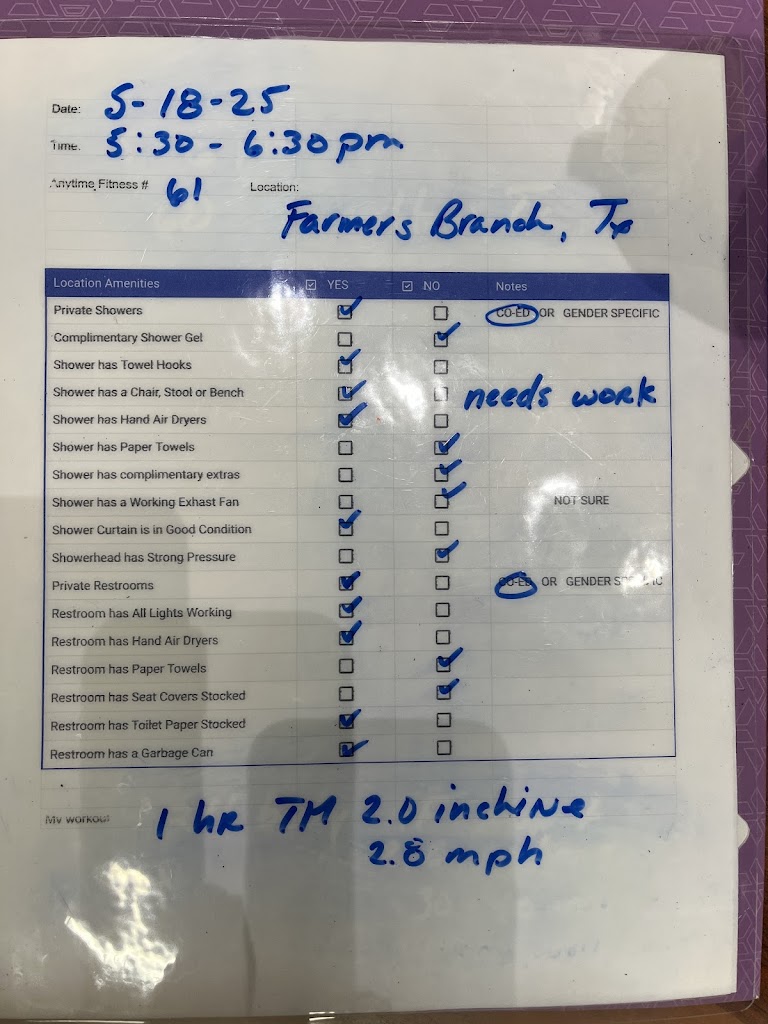 Date: 5-18-25
Time. 5:30 - 6:30 pm
Anytime Fitness # 61 Location:
Farmers Branch, Tx
Location Amenities ☑ YES ☑ NO Notes
Private Showers ☑ ☐ CO-ED OR GENDER SPECIFIC
Complimentary Shower Gel ☐ ☑
Shower has Towel Hooks ☑ ☐
Shower has a Chair, Stool or Bench ☑ ☐ needs work
Shower has Hand Air Dryers ☑ ☐
Shower has Paper Towels ☐ ☑
Shower has complimentary extras ☐ ☑
Shower has a Working Exhast Fan ☐ ☑ NOT SURE
Shower Curtain is in Good Condition ☑ ☐
Showerhead has Strong Pressure ☐ ☑
Private Restrooms ☑ ☐ CO-ED OR GENDER SPECIFIC
Restroom has All Lights Working ☑ ☐
Restroom has Hand Air Dryers ☑ ☐
Restroom has Paper Towels ☐ ☑
Restroom has Seat Covers Stocked ☐ ☑
Restroom has Toilet Paper Stocked ☑ ☐
Restroom has a Garbage Can ☑ ☐
My workout 1 hR TM 2.0 inchine
2.8 mph